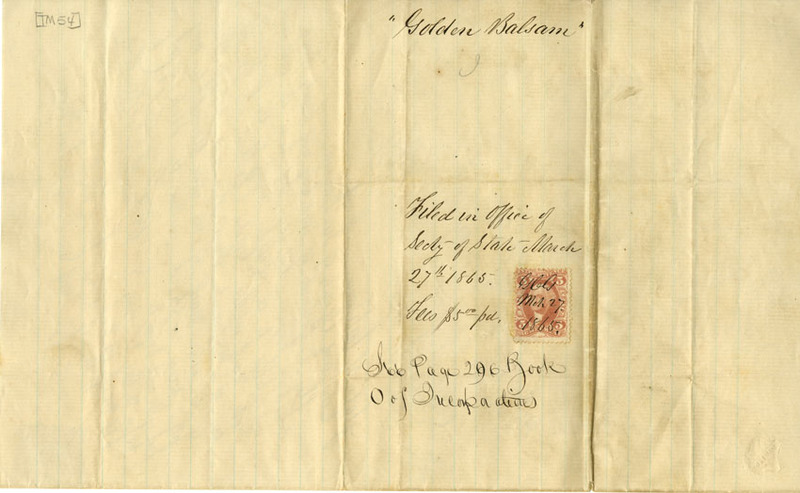 [TM54]
"Golden Balsam"
Filed in Office of
Secty of State March
27th 1865.
Fees $5.00 pd.
5 5
Mch 27.
1865.
See Page 296 Book
O of Incorpations